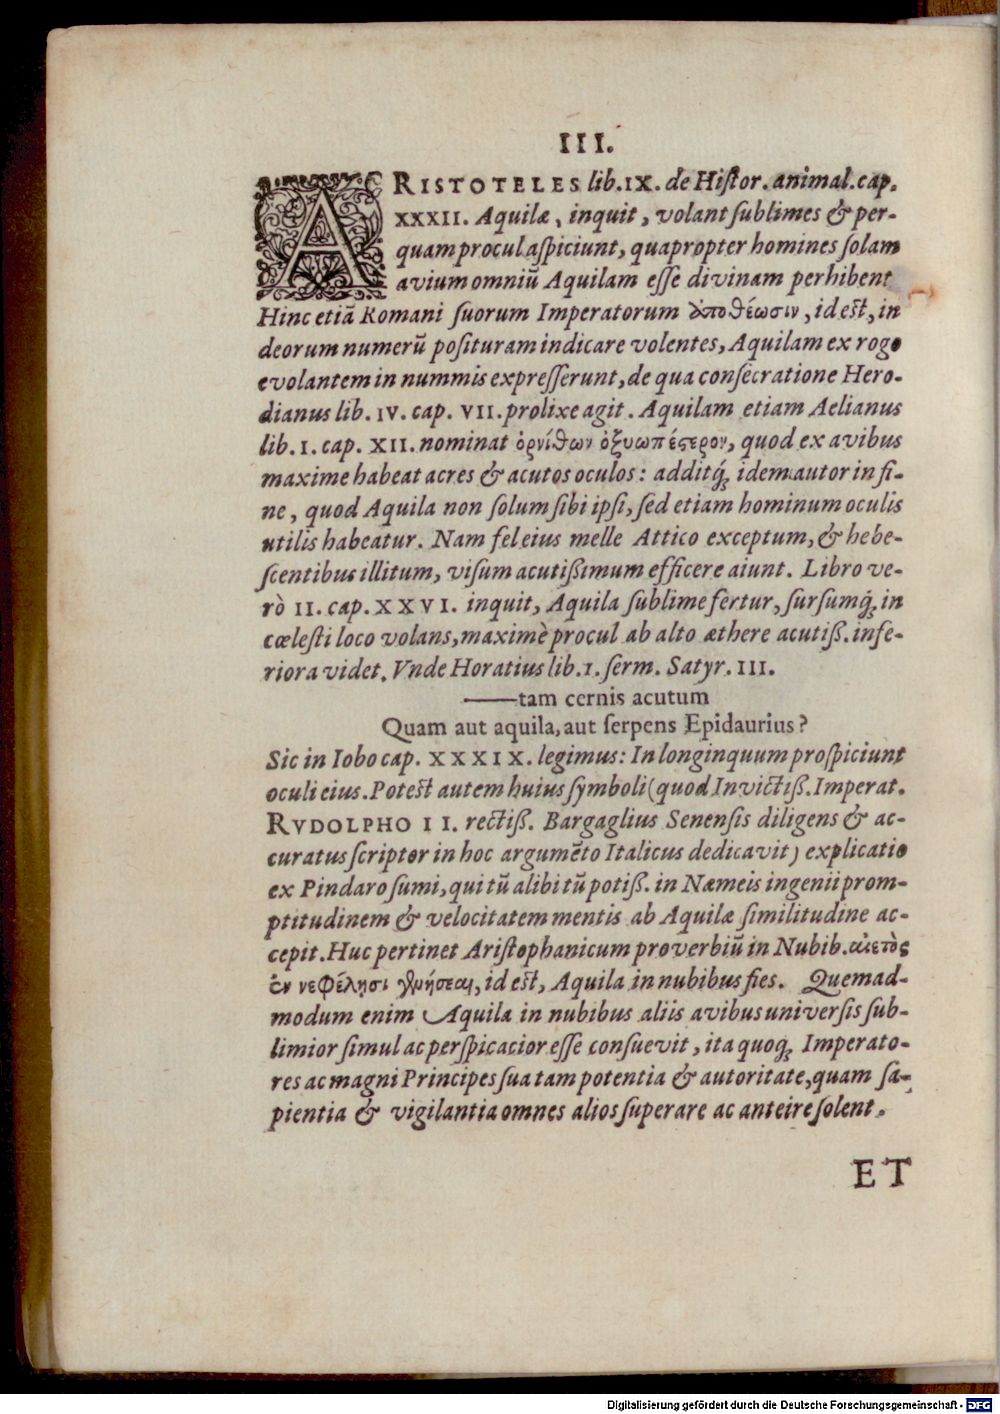 III.
ARISTOTELES lib. IX. de Hiſtor. animal. cap.
XXXII. Aquilæ, inquit, volant ſublimes & per-
quam procul aſpiciunt, quapropter homines ſolam
avium omniũ Aquilam eſſe divinam perhibent
Hinc etiã Romani ſuorum Imperatorum ἀποθέωσιν, id eſt, in
deorum numerũ poſituram indicare volentes, Aquilam ex rogo
evolantem in nummis expreſſerunt, de qua conſecratione Hero-
dianus lib. IV. cap. VII. prolixe agit. Aquilam etiam Aelianus
lib. I. cap. XII. nominat ὀρνίθων ὀξυωπέςερον, quod ex avibus
maxime habeat acres & acutos oculos: additq́; idem autor in fi-
ne, quod Aquila non ſolum ſibi ipſi, ſed etiam hominum oculis
utilis habeatur. Nam fel eius melle Attico exceptum, & hebe-
ſcentibus illitum, viſum acutißimum efficere aiunt. Libro ve-
rò II. cap. XXVI. inquit, Aquila ſublime fertur, ſurſumq́; in
cœleſti loco volans, maximè procul ab alto æthere acutiß. infe-
riora videt. Vnde Horatius lib. I. ſerm. Satyr. III.
——tam cernis acutum
Quam aut aquila, aut ſerpens Epidaurius?
Sic in Iobo cap. XXXIX. legimus: In longinquum proſpiciunt
oculi eius. Poteſt autem huius ſymboli (quod Invictiß. Imperat.
RVDOLPHO II. rectiß. Bargaglius Senenſis diligens & ac-
curatus ſcriptor in hoc argumẽto Italicus dedicavit) explicatio
ex Pindaro ſumi, qui tũ alibi tũ potiß. in Næmeis ingenii prom-
ptitudinem & velocitatem mentis ab Aquilæ ſimilitudine ac-
cepit. Huc pertinet Ariſtophanicum proverbiũ in Nubib. αἰετὸς
ἐν νεφέλῃσι γενήσεαι, id eſt, Aquila in nubibus fies. Quemad-
modum enim Aquila in nubibus aliis avibus univerſis ſub-
limior ſimul ac perſpicacior eſſe conſuevit, ita quoq; Imperato-
res ac magni Principes ſua tam potentia & autoritate, quam ſa-
pientia & vigilantia omnes alios ſuperare ac anteire ſolent.
ET
Digitalisierung gefördert durch die Deutsche Forschungsgemeinschaft - DFG